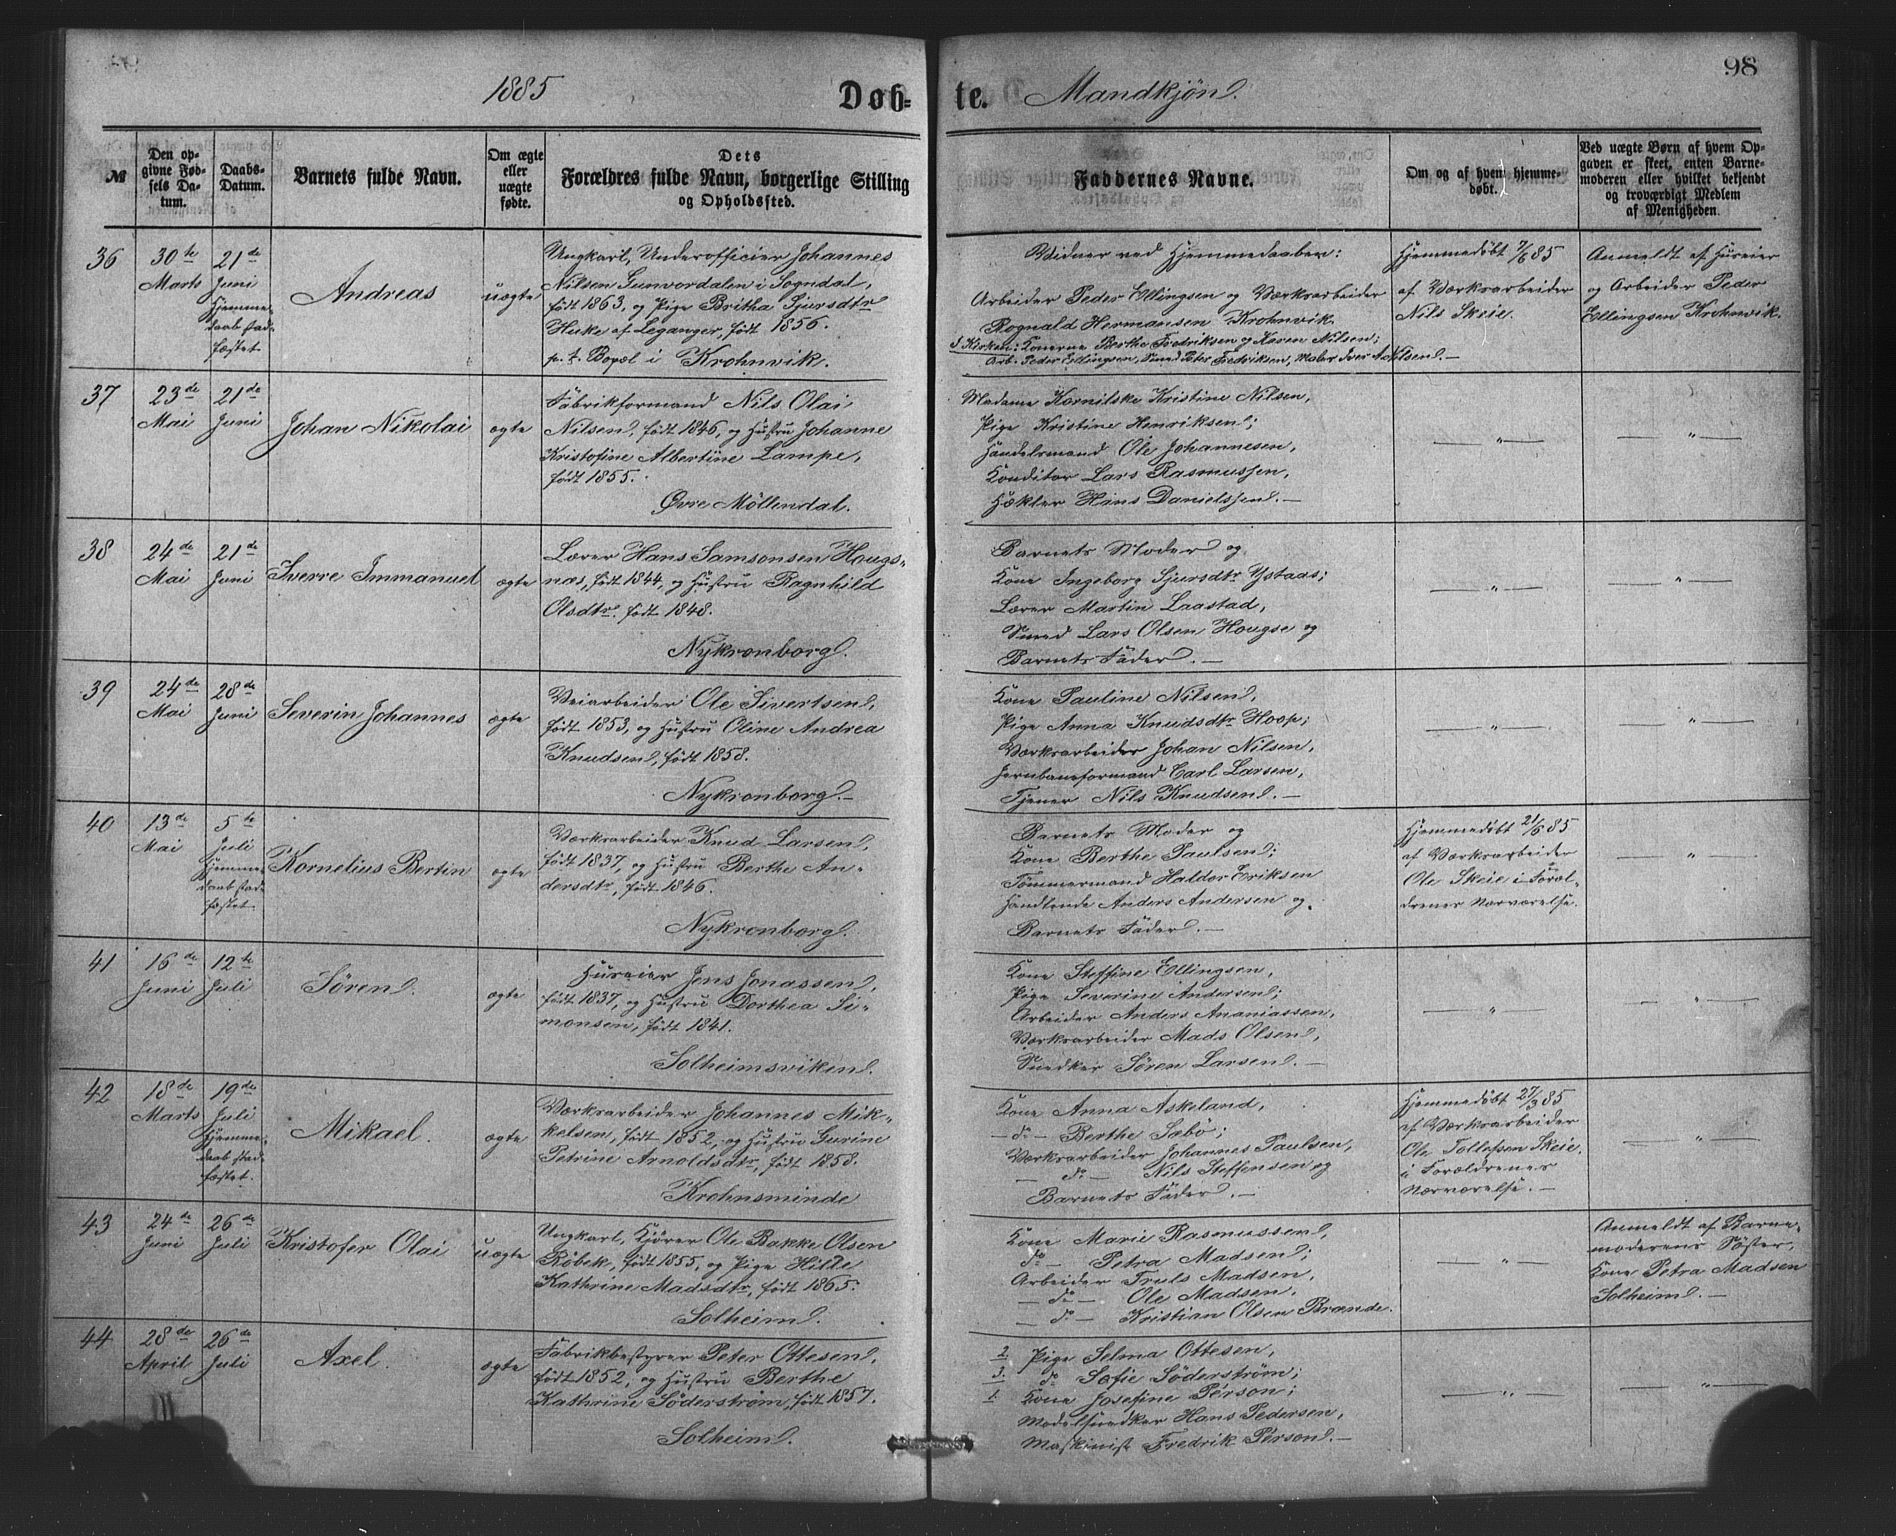 1885
Døb=
te.
Mandkjøn.
98
№
Den op-
givne Fød-
sels Da-
tum.
Daabs-
Datum.
Barnets fulde Navn.
Om ægte
eller
uægte
fødte.
Dets
Forældres fulde Navn, borgerlige Stilling
og Opholdssted.
Faddernes Navne.
Om og af hvem hjemme-
døbt.
Ved uægte Børn af hvem Op-
gaven er skeet, enten Barne-
moderen eller hvilket bekjendt
og troværdigt Medlem
af Menigheden.
36
30te
Marts
21de
Juni
Hjemme-
daab stad-
fæstet
Andreas
uægte
Ungkarl, Underofficier Johannes
Nilsen Gunvordalen i Sogndal,
født 1863, og Pige Britha Sjursdtr
Huke af Leganger, født 1856.
p. t. Bopæl i Krohnvik.
Vidner ved Hjemmedaaben:
Arbeider Peder Ellingsen og Værksarbeider
Rognald Hermansen Krohnvik.
I Kirken: Konerne Berthe Fredriksen og Karen Nilsen;
Arb: Peder Ellingsen, Smed Peter Fredriksen, Maler Iver Axelsen. —
Hjemmedøbt 7/6 85
af Værksarbeider
Nils Skeie.
Anmeldt af Huseier
og Arbeider Peder
Ellingsen Krohnvik.
37
23de
Mai
21de
Juni
Johan Nikolai
ægte
Fabrikformand Nils Olai
Nilsen, født 1846, og Hustru Johanne
Kristofine Albertine Lampe,
født 1855.
Øvre Möllendal.
Madame Kornilske Kristine Nilsen,
Pige Kristine Henriksen;
Handelsmand Ole Johannesen,
Konditor Lars Rasmussen,
Hækler Hins Danielssen. —
— " —
— " —
38
24de
Mai
21de
Juni
Sverre Immanuel
ægte
Lærer Hans Samsonsen Hougs-
næs, født 1844, og Hustru Ragnhild
Olsdtr. født 1848.
Nykronborg.
Barnets Moder og
Kone Ingeborg Sjursdtr Ystaas;
Lærer Martin Laastad,
Smed Lars Olsen Hougse og
Barnets Fader. —
— " —
— " —
39
24de
Mai
28de
Juni
Severin Johannes
ægte
Veiarbeider Ole Sivertsen,
født 1853, og Hustru Oline Andrea
Knudsen, født 1858.
Nykronborg. —
Kone Pauline Nilsen,
Pige Anna Knudsdtr Hoop;
Værksarbeider Johan Nilsen,
Jernbaneformand Carl Larsen,
Tjener Nils Knudsen. —
— " —
— " —
40
13de
Mai
5te
Juli
Hjemme-
daab stad-
fæstet
Kornelius Bertin
ægte
Værksarbeider Knud Larsen,
født 1837, og Hustru Berthe An-
dersdtr, født 1846.
Nykronborg.
Barnets Moder og
Kone Berthe Paulsen;
Tömmermand Haldor Eriksen
Handlende Anders Andersen og
Barnets Fader. —
Hjemmedøbt 21/6 85
af Værksarbeider
Ole Skeie i Foræl-
drenes Nærværelse.
— " —
41
16de
Juni
12te
Juli
Sören.
ægte
Huseier Jens Jonassen,
født 1837, og Hustru Dorthea Si-
monsen, født 1841.
Solheimsviken.
Kone Steffine Ellingsen,
Pige Severine Andersen;
Arbeider Anders Ananiassen,
Værksarbeider Mads Olsen,
Snedker Sören Larsen. —
— " —
— " —
42
18de
Marts
19de
Juli
Hjemme-
daab stad-
fæstet.
Mikael.
ægte
Værksarbeider Johannes Mik-
kelsen, født 1852, og Hustru Gurine
Petrine Arnoldsdtr, født 1858.
Krohnsminde
Kone Anna Askeland,
— do — Berthe Sæbö;
Værksarbeider Johannes Paulsen,
— do — Nils Steffensen og
Barnets Fader. —
Hjemmedøbt 27/3 85
af Værksarbeider
Ole Tollefsen Skeie
i Forældrenes
Nærværelse. —
— " —
43
24de
Juni
26de
Juli
Kristofer Olai
uægte
Ungkarl, Kjörer Ole Bakke Olsen
Röbek, født 1855, og Pige Hilde
Kathrine Madsdtr, født 1865.
Solheim.
Kone Marie Rasmussen,
do — Petra Madsen;
Arbeider Truls Madsen,
— do — Ole Madsen,
— do — Kristian Olsen Brænde.
— " —
Anmeldt af Barne-
moderens Söster,
Kone Petra Madsen
Solheim. —
44
28de
April
26de
Juli
Axel.
ægte
Fabrikbestyrer Peter Ottesen,
født 1852, og Hustru Berthe
Kathrine Söderström, født 1857.
Solheim.
2. Pige Selma Ottesen,
3. do Sofie Söderström;
1. Kone Josefine Person;
Modelsnedker Hans Pedersen,
Maskinist Fredrik Person. —
— " —
— " —